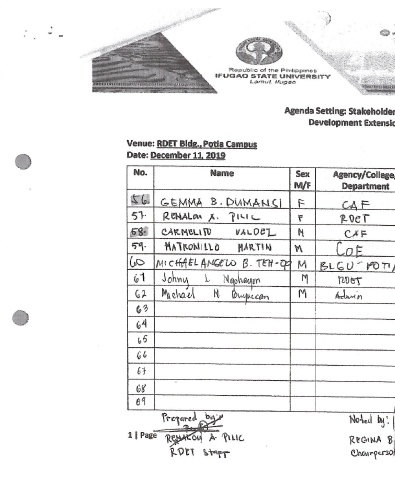 Republic of the Philippines
IFUGAO STATE UNIVERSITY
Lamut, Ifugao
Agenda Setting: Stakeholder
Development Extensio
Venue: RDET Bldg., Potia Campus
Date: December 11, 2019
No. Name Sex M/F Agency/College/ Department
56. GEMMA B. DUMANSI F CAF
57. REMALOU A. PILIC F RDET
58. CARMELITO VALDEZ M CAF
59. MATRONILLO MARTIN M COE
60 MICHAEL ANGELO B. M BLGU-POTIA
61 Johny L M RDET
62 Michael M M Admin
63
64
65
66
67
68
69
Prepared by: Noted by:
1 | Page REMALOU A PILIC REGINA B
RDET Staff Chairperso